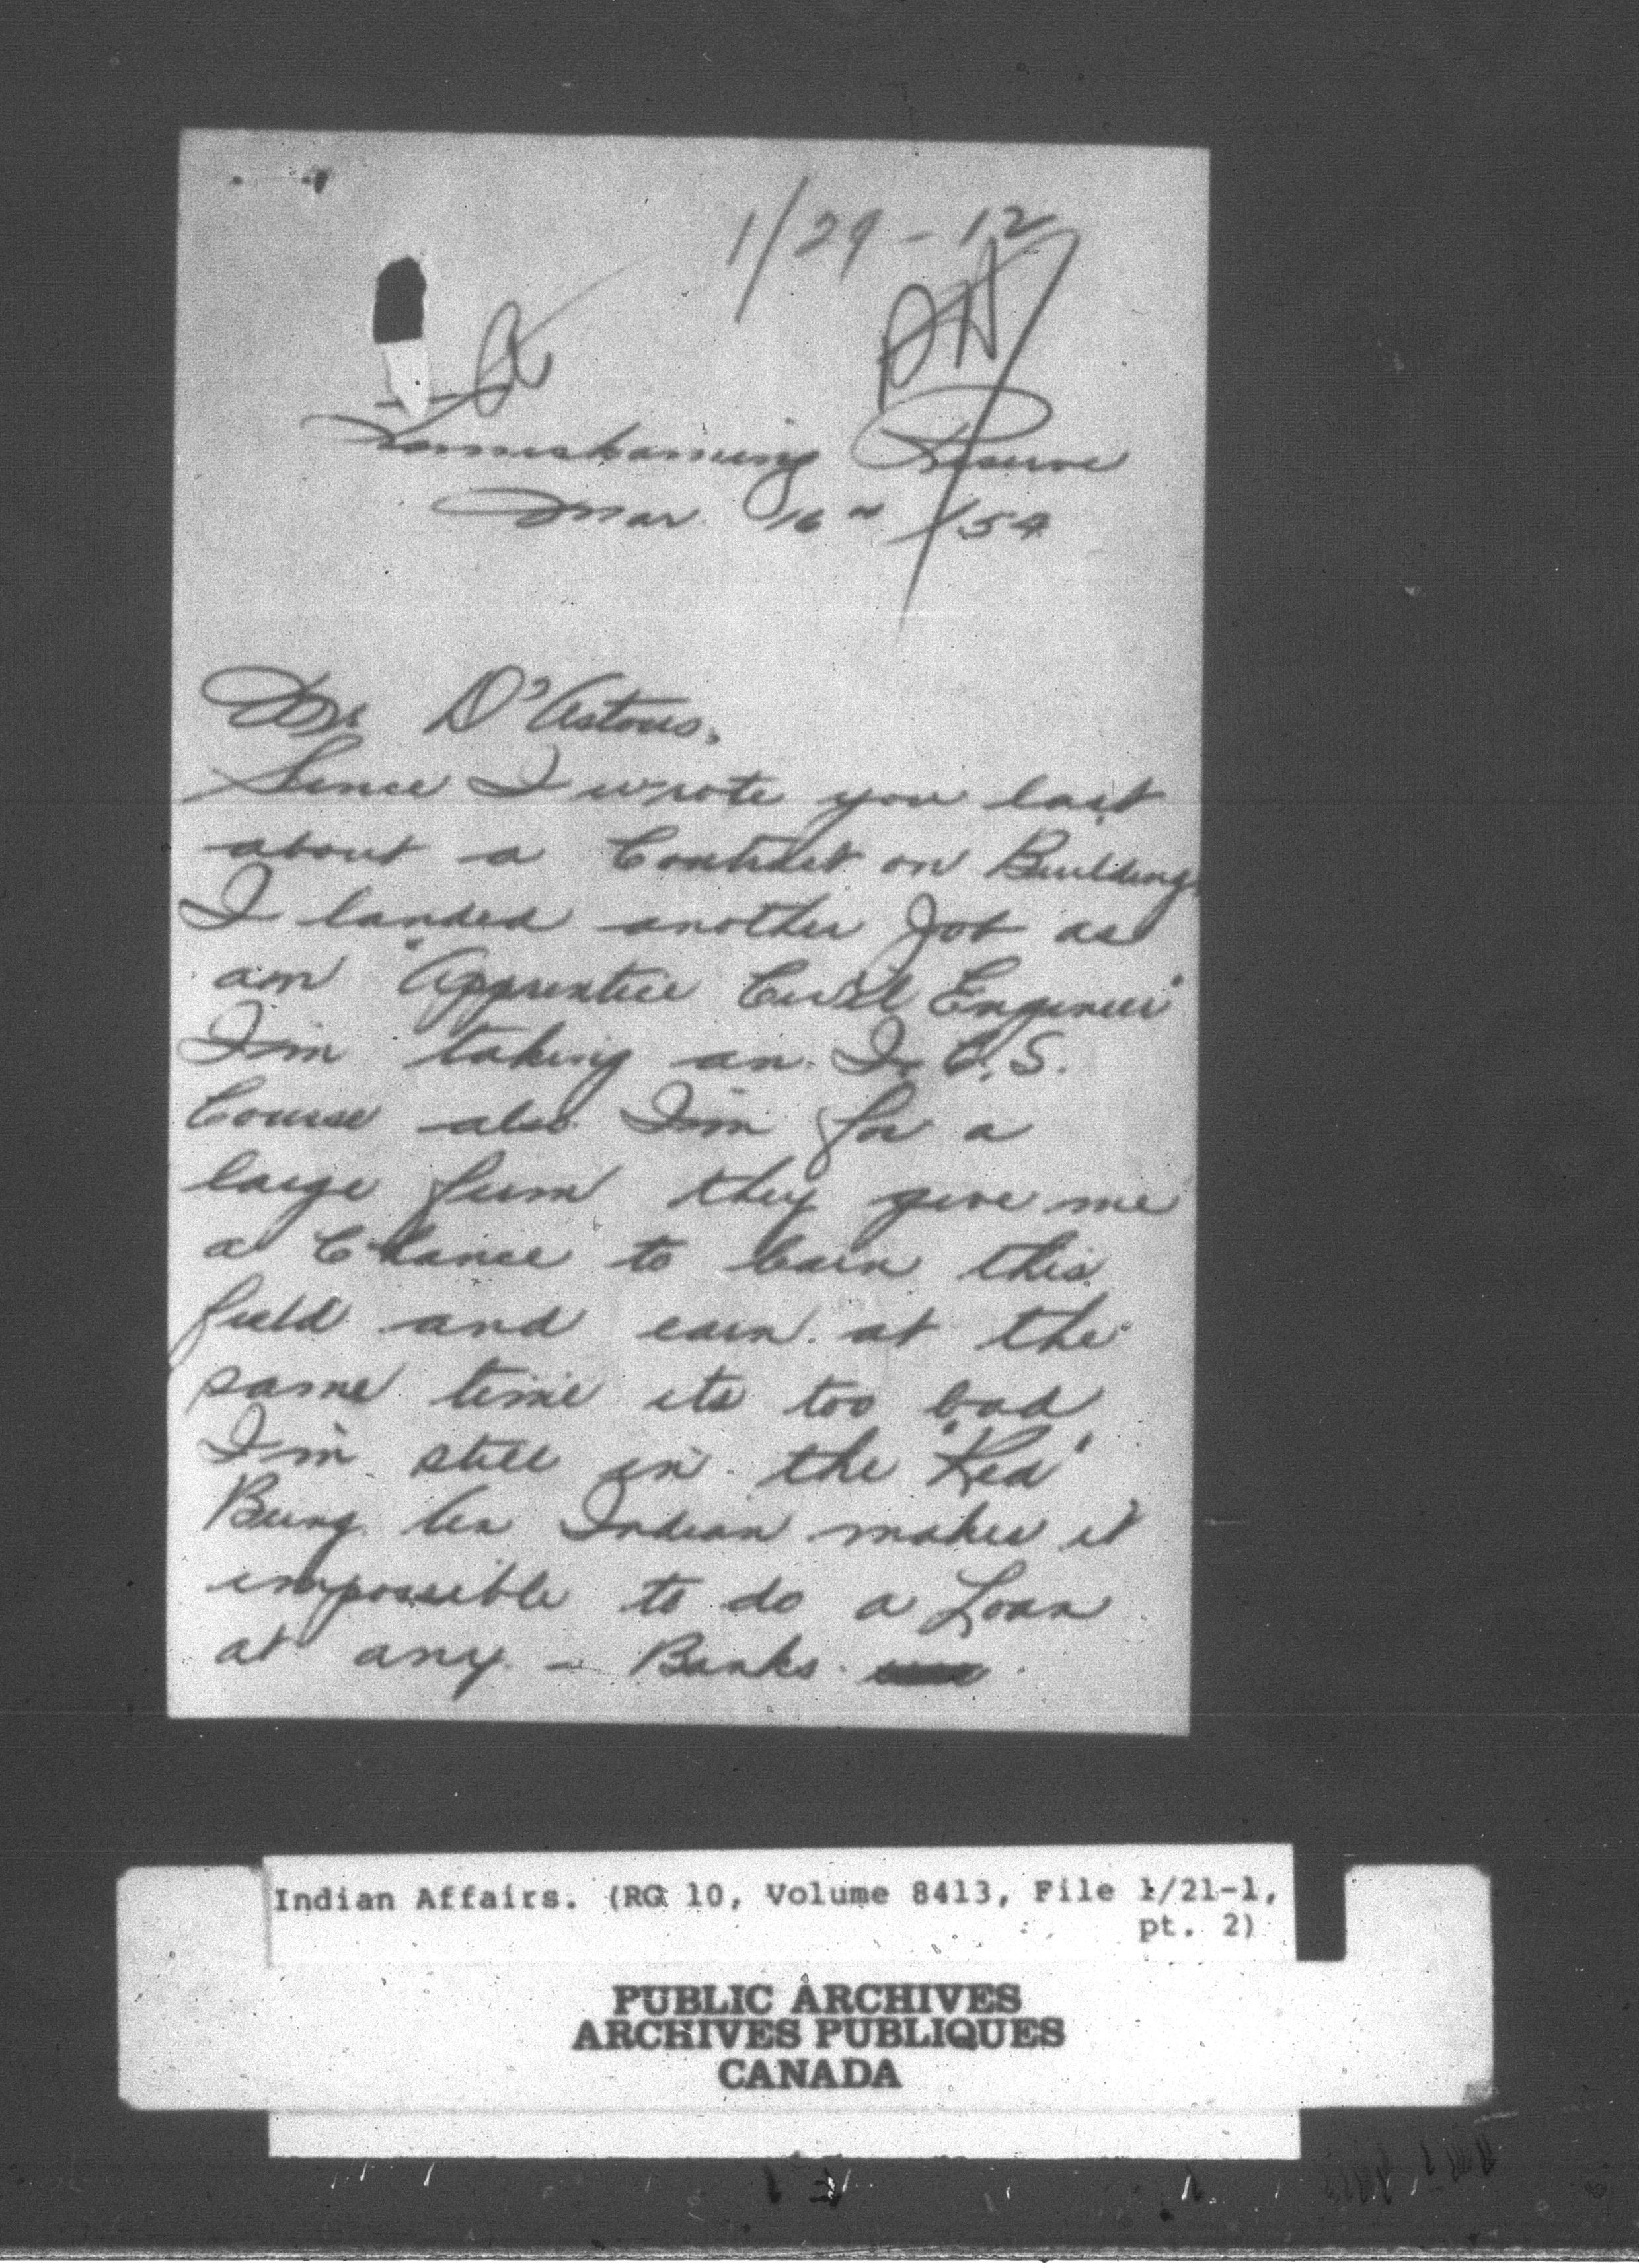 1/29-12
Temiskaming Reserve
Mar 16th /54
Mr D'Astous,
Since I wrote you last
about a Contract on Building
I landed another Job as
an "Apprentice Civil Engineer"
I'm taking an I.C.S.
Course also I'm for a
large firm they give me
a Chance to learn this
field and earn at the
same time its too bad
I'm still in the "Red"
Being An Indian makes it
impossible to do a Loan
at any - Banks
Indian Affairs. (RG 10, Volume 8413, File 1/21-1,
pt. 2)
PUBLIC ARCHIVES
ARCHIVES PUBLIQUES
CANADA